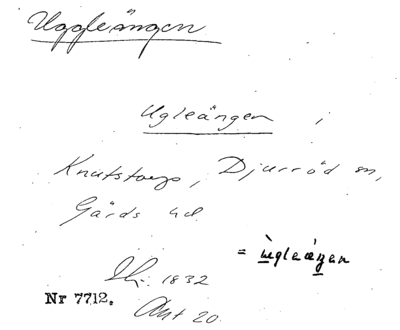 Uggleängen
Ugleängen,
Knutstorp, Djurröd sn,
Gärds hd.
= ùgleáŋen
1832
Nr 7712. Akt 20.